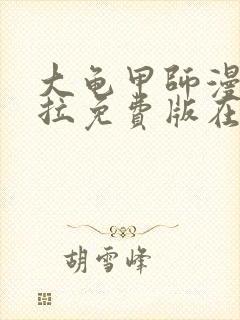 大龟甲师漫
拉免费版在
胡雪峰